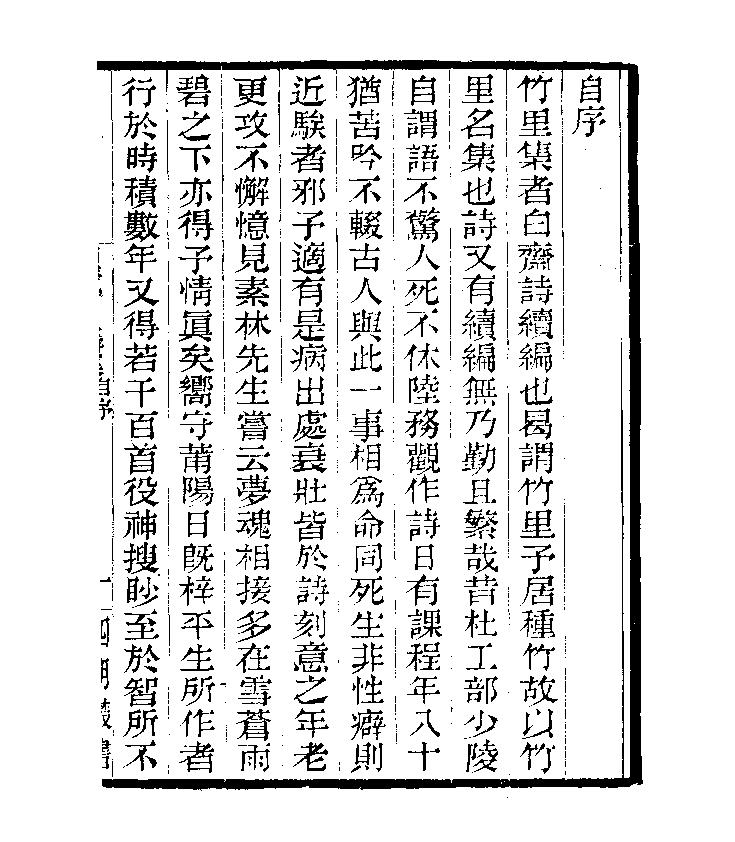 自序
竹里集者白齋詩續編也曷謂竹里予居種竹故以竹
里名集也詩又有續編無乃勤且繁哉昔杜工部少陵
自謂語不驚人死不休陸務觀作詩日有課程年八十
猶苦吟不輟古人與此一事相爲命同死生非性癖則
近騃者邪予適有是病出處衰壯皆於詩刻意之年老
更攻不懈憶見素林先生嘗云夢魂相接多在雪蒼雨
碧之下亦得予情眞矣嚮守莆陽日旣梓平生所作者
行於時積數年又得若干百首役神搜眇至於智所不
自序
四明叢書